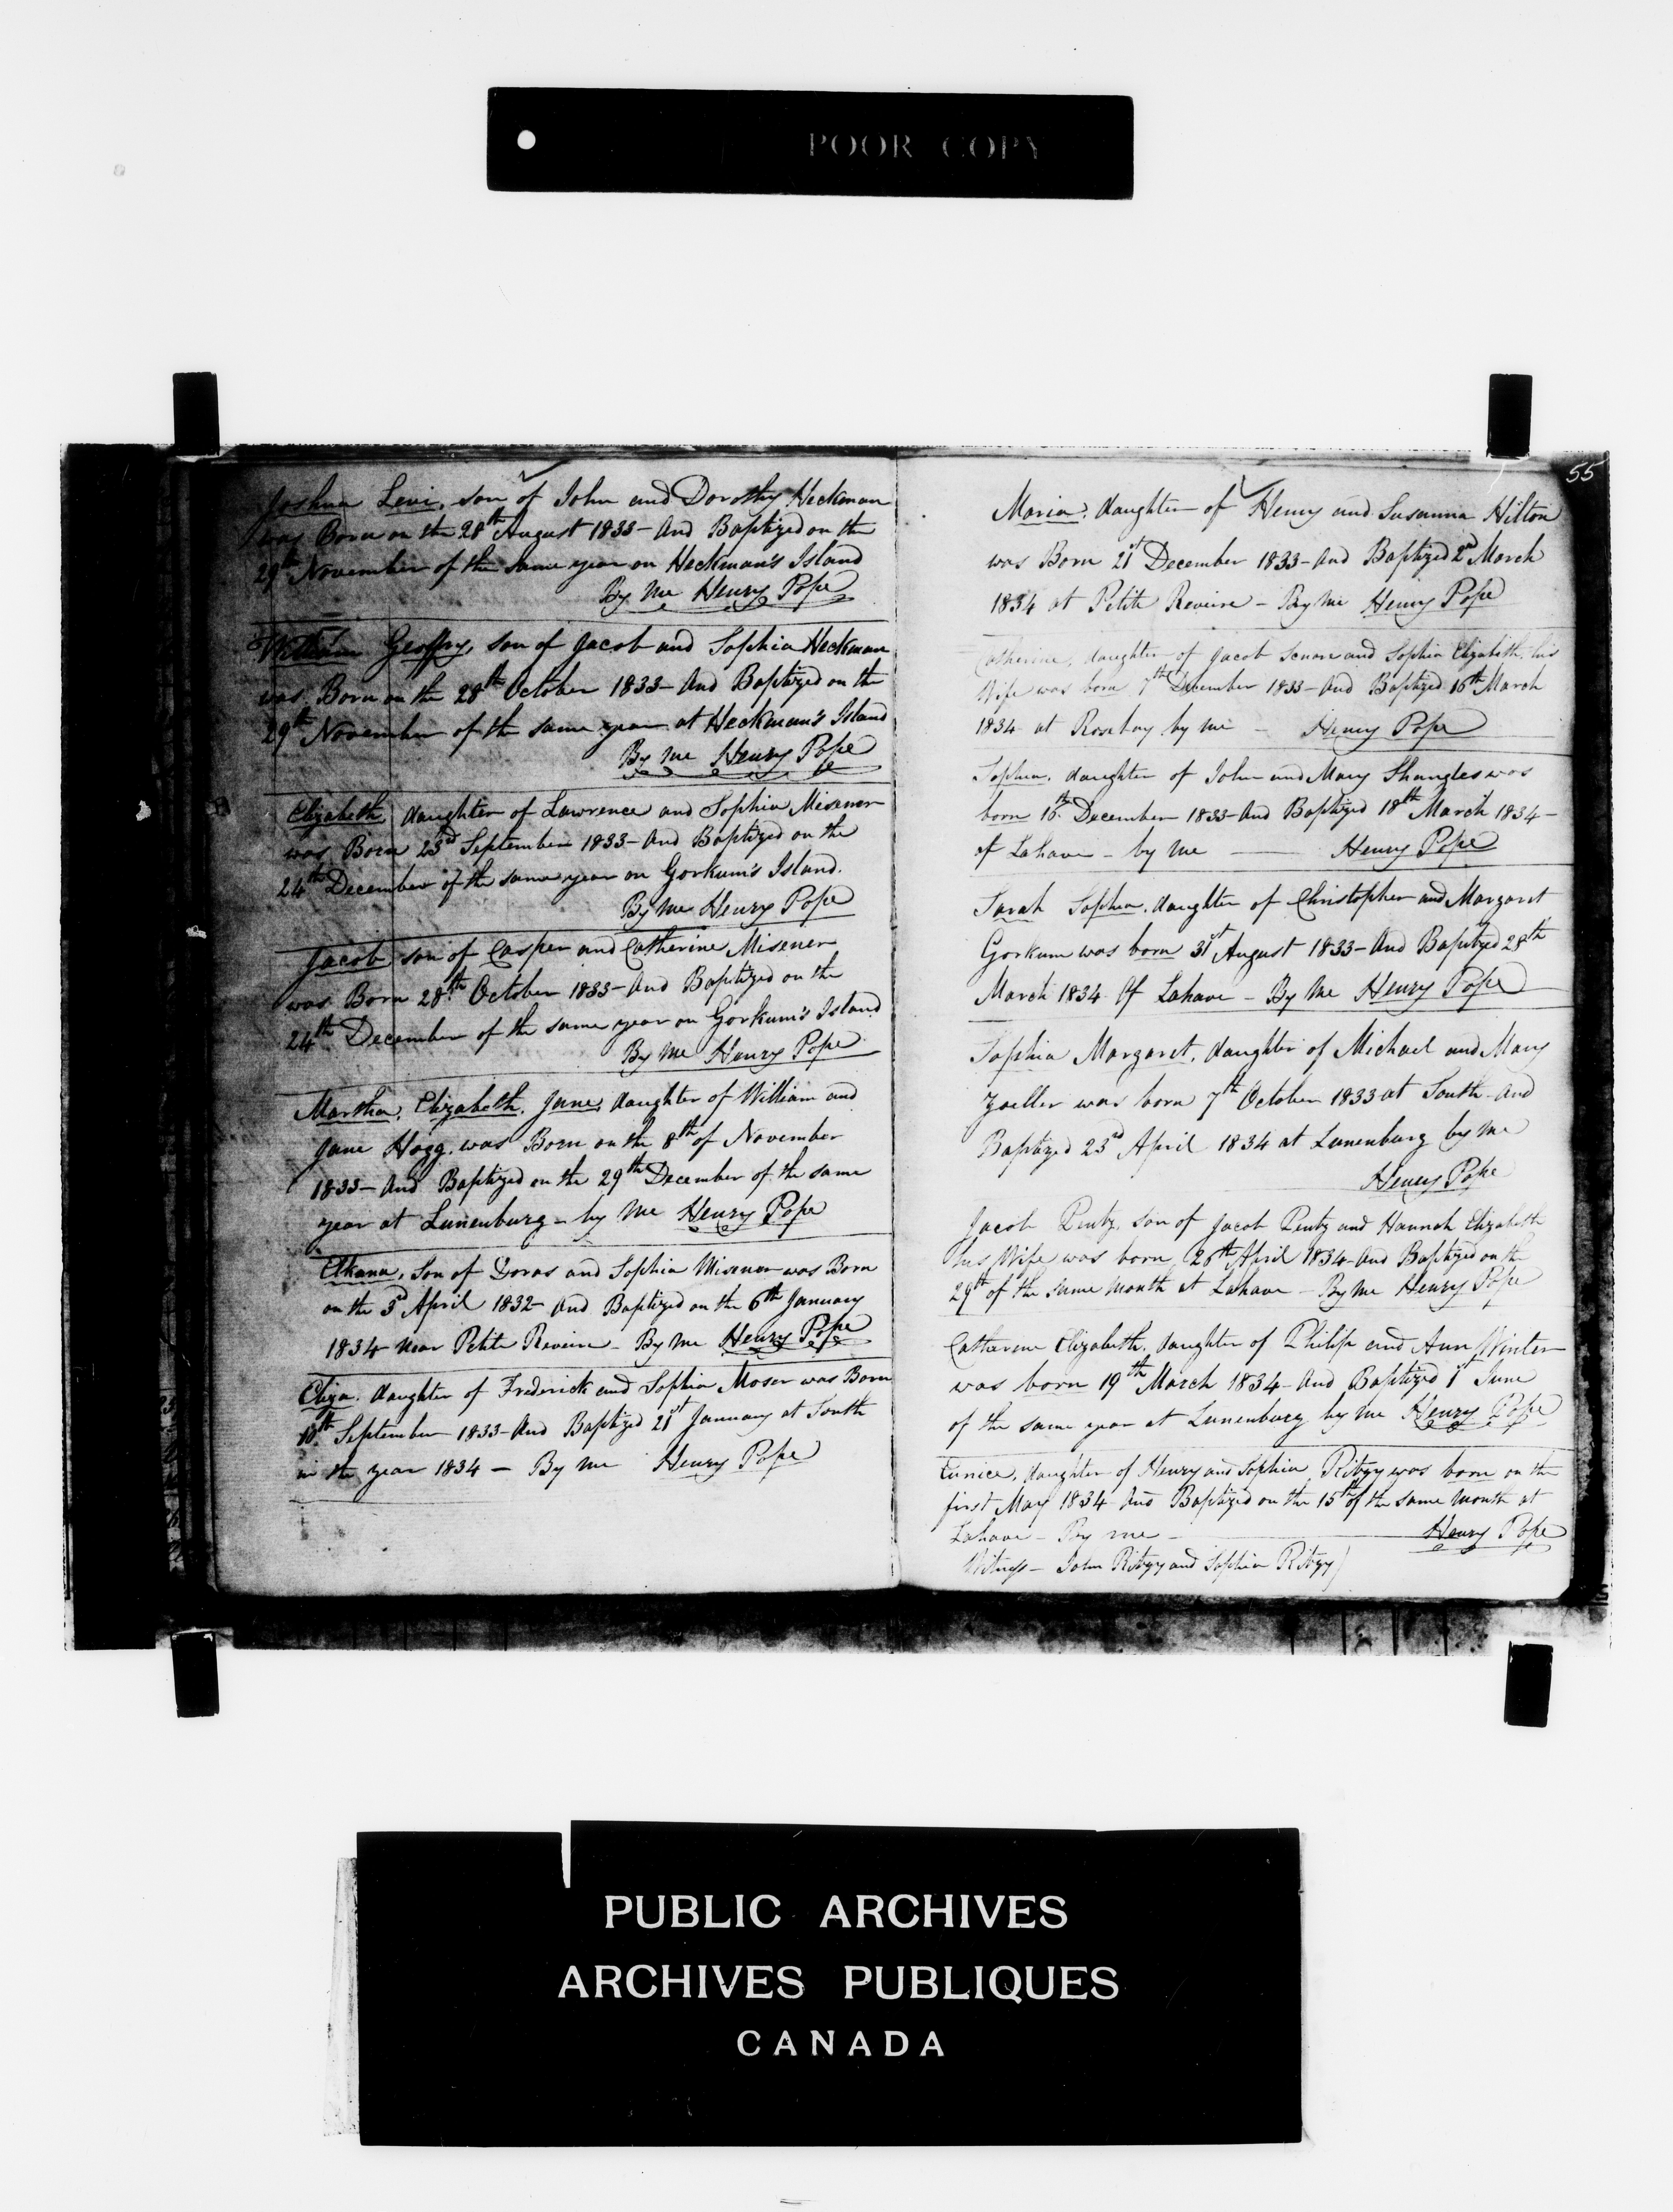 POOR COPY
55
Joshua Levi, son of John and Dorothy Heckman
was Born on the 28th August 1833 - And Baptized on the
29th November of the same year on Heckman's Island
By me Henry Pope
William Geoffry, son of Jacob and Sophia Heckman
was Born on the 28th October 1833 - And Baptized on the
29th November of the same year at Heckman's Island
By me Henry Pope
Elizabeth, daughter of Lawrence and Sophia Misener
was Born 23rd September 1833 - And Baptized on the
24th December of the same year on Gorkum's Island.
By me Henry Pope
Jacob son of Casper and Catherine Misener
was Born 28th October 1833 - And Baptized on the
24th December of the same year on Gorkum's Island
By me Henry Pope
Martha, Elizabeth, Jane, daughter of William and
Jane Hogg, was Born on the 8th of November
1833 - And Baptized on the 29th December of the same
year at Lunenburg - by me Henry Pope
Elkana, Son of and Sophia Misener was Born
on the 3d April 1832 - And Baptized on the 6th January
1834 near Petite Reveire - By me Henry Pope
Eliza, daughter of Frederick and Sophia Moser was Born
10th September 1833 - And Baptized 21st January at South
in the year 1834 - By me Henry Pope
Maria, daughter of Henry and Susanna Hilton
was Born 21st December 1833 - And Baptized 2nd March
1834 at Petite Reveire - By me Henry Pope
Catherine, daughter of Jacob and Sophia Elizabeth, his
Wife was born 7th December 1833 - And Baptized 16th March
1834 at Rosebay by me - Henry Pope
Sophia, daughter of John and Mary was
born 16th December 1833 - And Baptized 18th March 1834 -
at Lahave - by me - Henry Pope
Sarah Sophia, daughter of Christopher and Margaret
Gorkum was born 31st August 1833 - And Baptized 28th
March 1834 At Lahave - By me Henry Pope
Sophia Margaret, daughter of Michael and Mary
Zoeller was born 7th October 1833 at South - And
Baptized 23rd April 1834 at Lunenburg by me
Henry Pope
Jacob Pentz, son of Jacob Pentz and Hannah Elizabeth
his Wife was born 26th April 1834 - And Baptized on the
29th of the same month at Lahave - By me Henry Pope
Catherine Elizabeth, daughter of Philip and Ann Winter
was born 19th March 1834 - And Baptized 1st June
of the same year at Lunenburg by me Henry Pope
Eunice, daughter of Henry and Sophia was born on the
first May 1834 And Baptized on the 15th of the same month at
Lahave - By me - Henry Pope
Witness - John and Sophia
PUBLIC ARCHIVES
ARCHIVES PUBLIQUES
CANADA